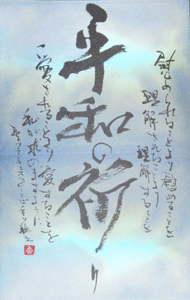 平和の祈り
慰められることより慰めることを
理解されることより
理解することを
愛されることより愛することを
私が求めますように